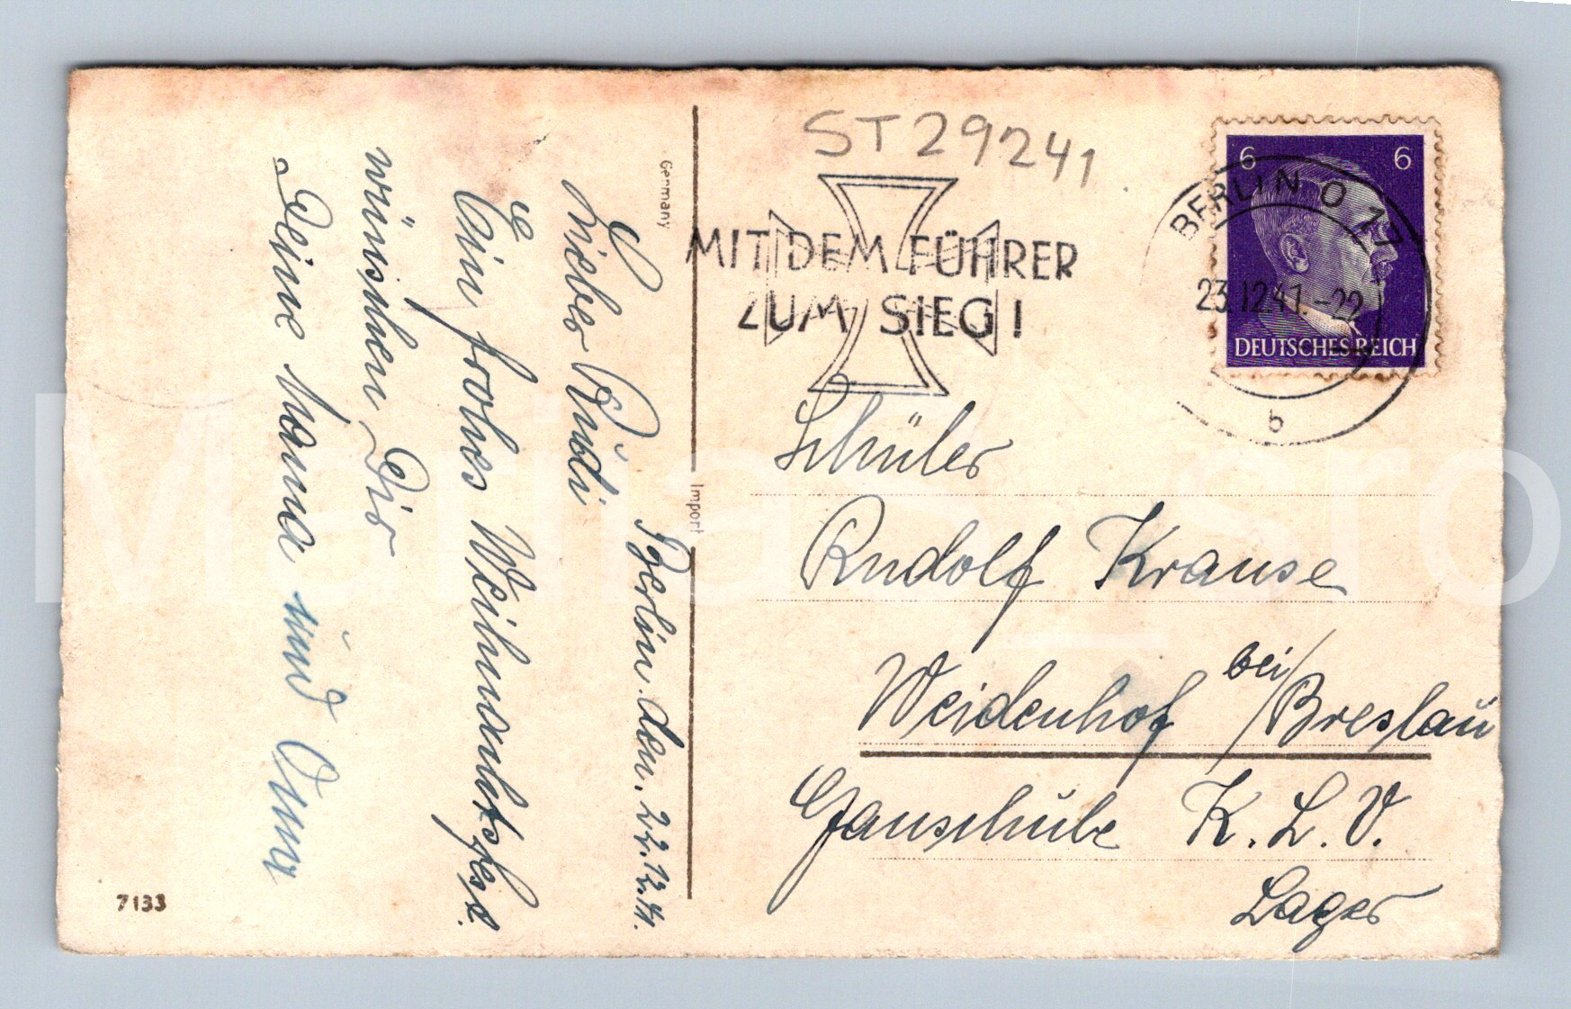 Berlin. den. 22.12.41.
Lieber Rudi
Ein frohes Weihnachtsfest
wünschen Dir
Deine Mama und Oma
7133
Germany
Import
ST29241
MIT DEM FÜHRER
ZUM SIEG!
BERLIN O 17
23.12.41.-22
b
6 6
DEUTSCHES REICH
Schüler
Rudolf Krause
Weidenhof bei/Breslau
Gauschule K.L.V.
Lager